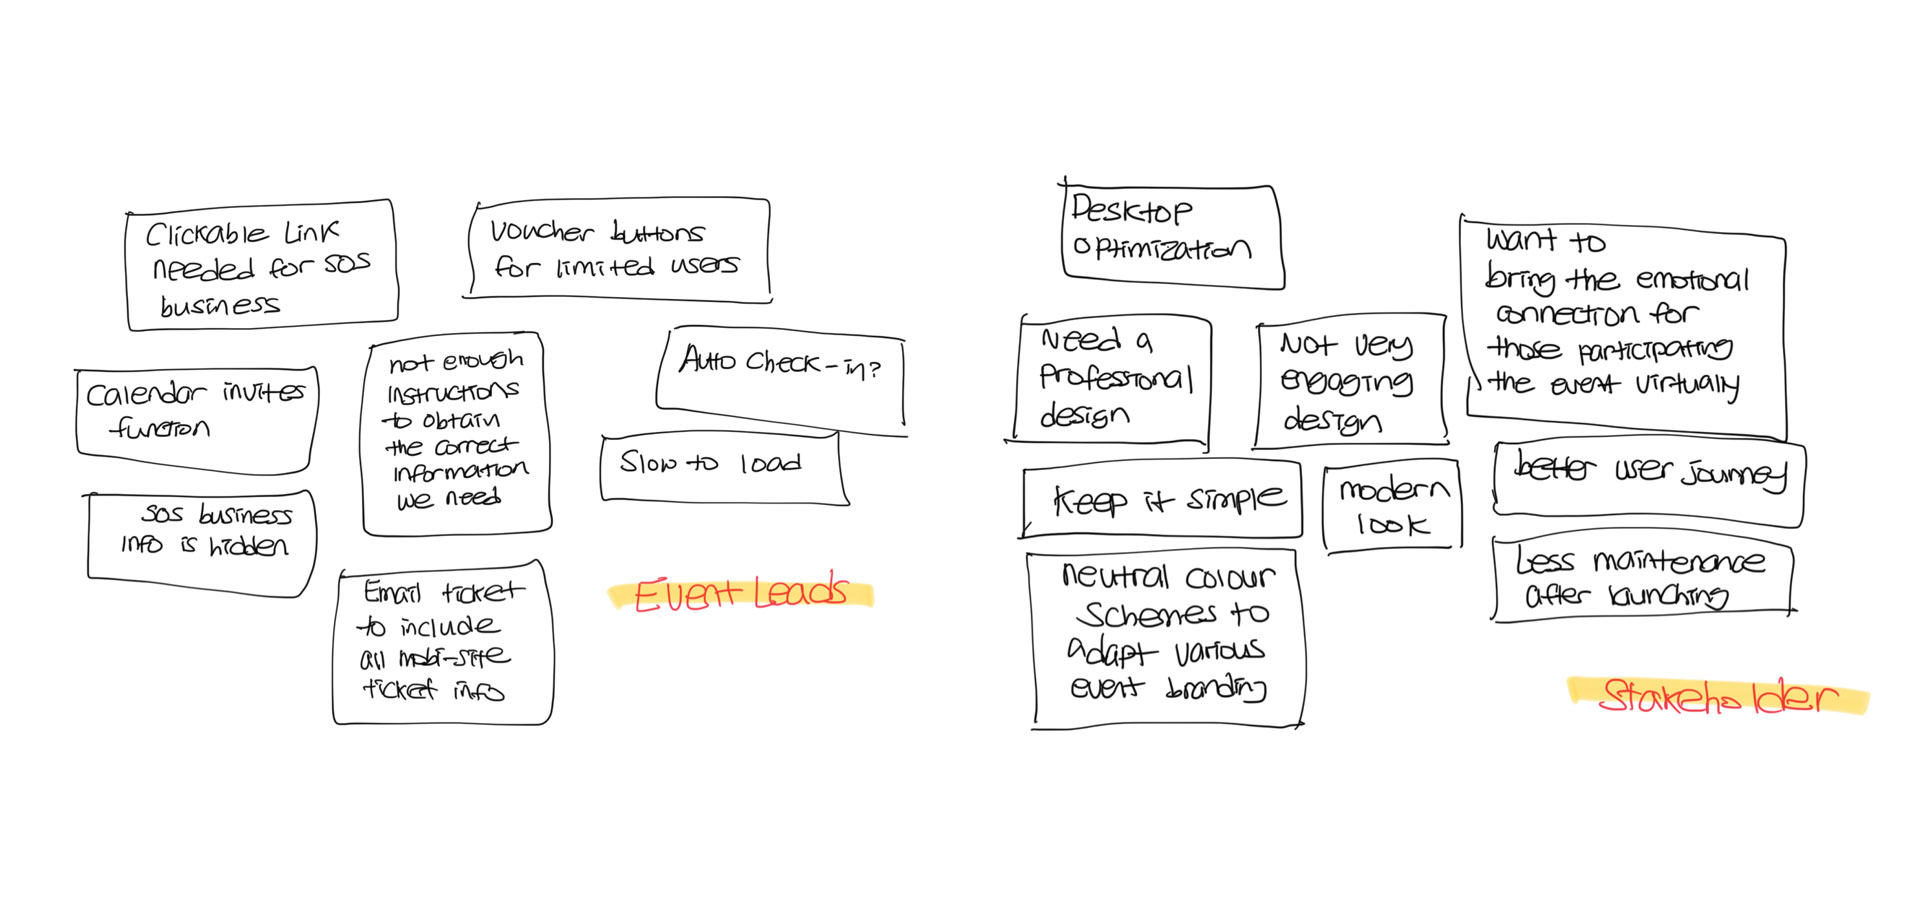 Clickable Link
needed for sos
business
Voucher buttons
for limited users
Calendar invites
function
not enough
instructions
to obtain
the correct
information
we need
Auto Check-in?
Slow to load
SOS business
info is hidden
Email ticket
to include
all mobi-site
ticket info
Event Leads
Desktop
optimization
Want to
bring the emotional
connection for
those participating
the event virtually
Need a
professional
design
Not very
engaging
design
Keep it simple
modern
look
better user journey
neutral colour
schemes to
adapt various
event branding
Less maintenance
after launching
Stakeholder